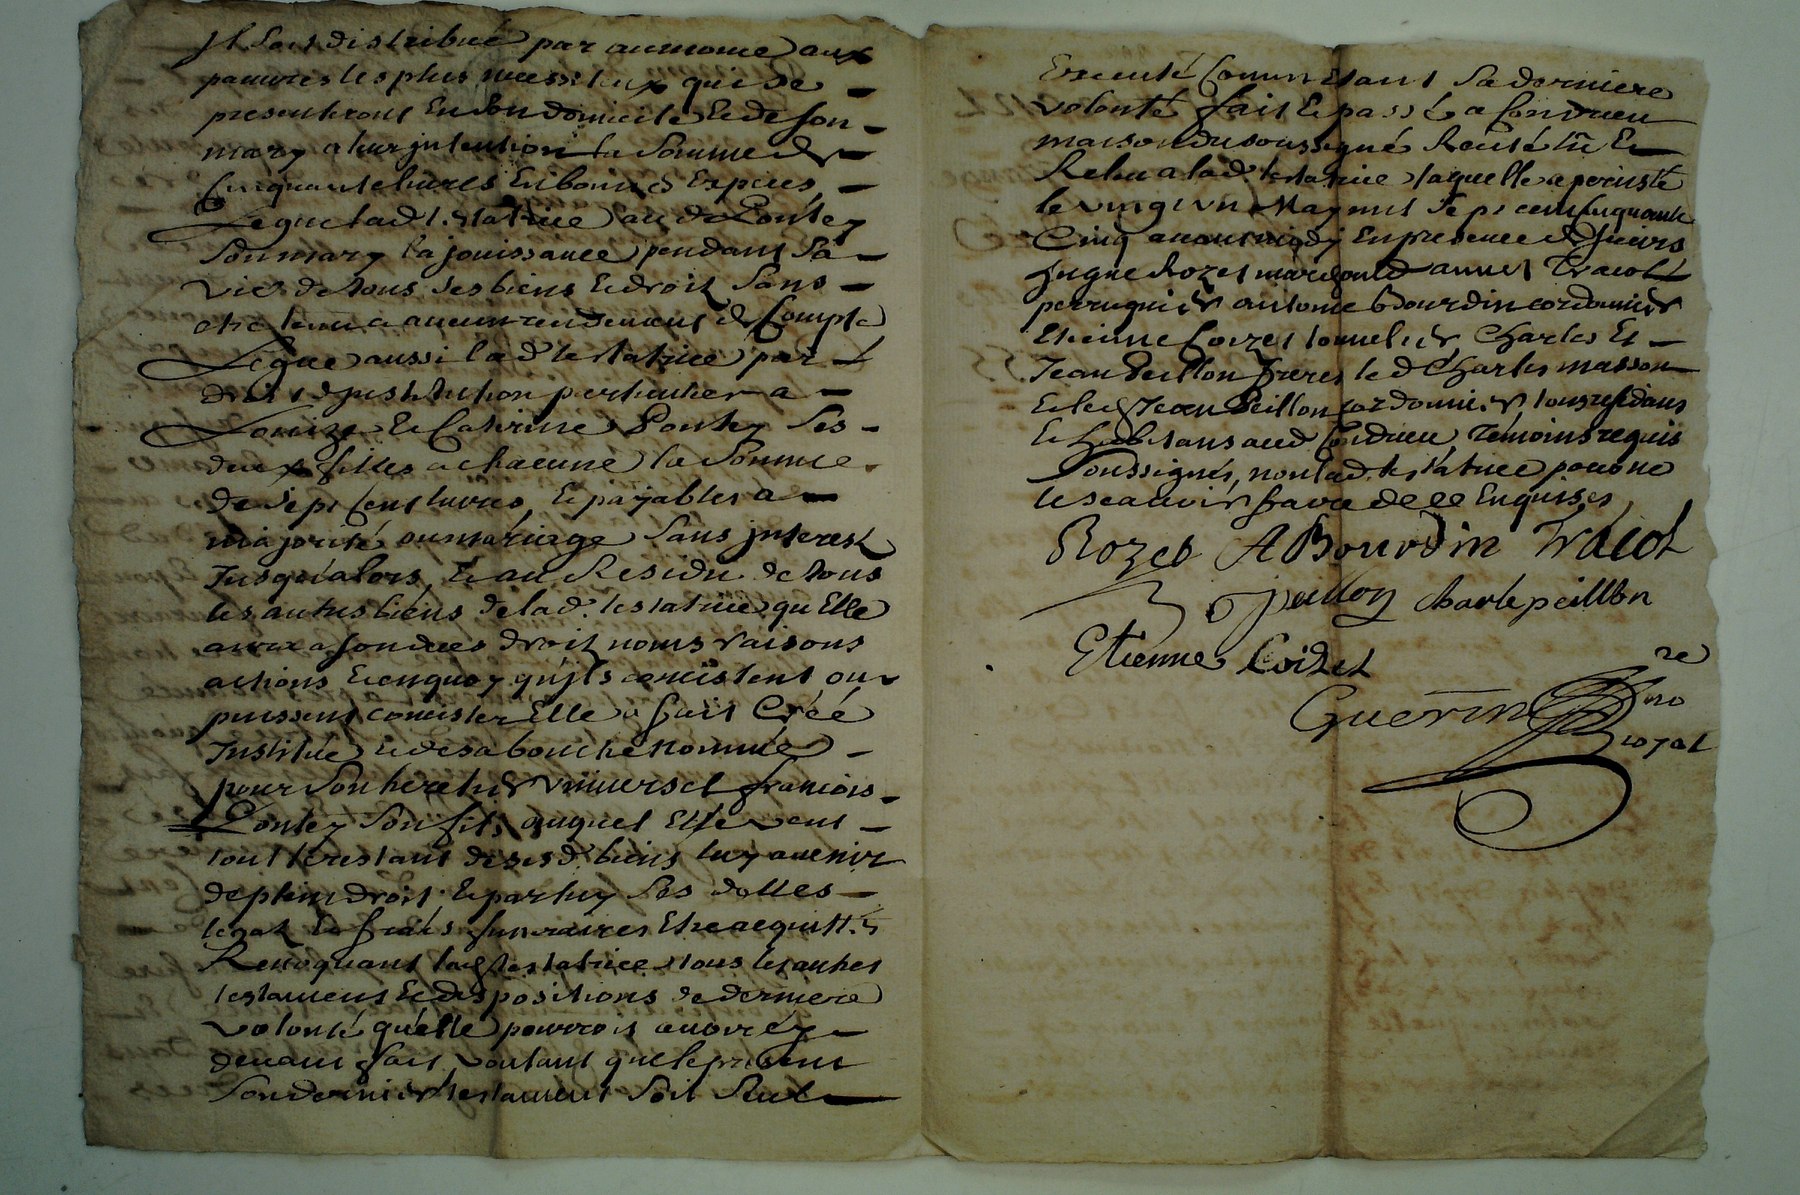 Il soit distribué par aumone aux
pauvres les plus necessiteux qui se
presenteront En son domicile Et de son
mary a leur jntention la somme de
Cinquante livres En bonnes Especes
Legue lad. testatrice au d. Pontey
son mary la jouissance pendant sa
vie de tous ses biens Et droits sans
etre tenu a aucun rendement de Compte
Legue aussi lad. testatrice par
droit djnstitution particuliere a
Louize Et Catérine Pontey ses
deux filles a chacune la somme
de sept Cent livres, Et payables a
majorité ou mariage sans jnterest
Jusqu'alors, Et au Residu de tous
les autres biens de lad. testatrice qu'Elle
aura a son deces droits noms raisons
actions Et en quoy qu'jls concistent ou
puissent concister Elle a fait Créé
Institué Et de sa bouche nommé
pour son heretier vniversel francois
Pontey son fils, auquel Elle veut
tout le restant de ses d. biens luy avenir
de plein droit Et par luy ses dettes
legats Et fraÿs funeraires Etre acquittés
Revoquant lad. testatrice tous les autres
testamens Et dispositions de derniere
volonté qu'elle pourroit avoir cy
devant fait, voulant que le present
son dernier testament soit seul
Executé Comme Etant sa derniere
volonté fait Et passé a Condrieu
maison du soussigné Recité lû Et
Relu a lad. testatrice laquelle a percisté
le vingt vn May mil sept cent Cinquante
Cinq avant midy En presence de sieurs
hugue Rozet marchand annet Tracol
perruquier antoine Bourdin cordonnier
Etienne Coizet tonnelier Charles Et
Jean Peillon freres led. Charles masson
Et led. Jean Peillon cordonnier, tous residans
Et habitans aud. Condrieu temoins requis
Soussignés, non lad. testatrice pour ne
le scavoir faire de ce Enquises
Rozet ABourdin Tracol
J peillon charle peillon
Etienne Coizet
Guerin no re
royal